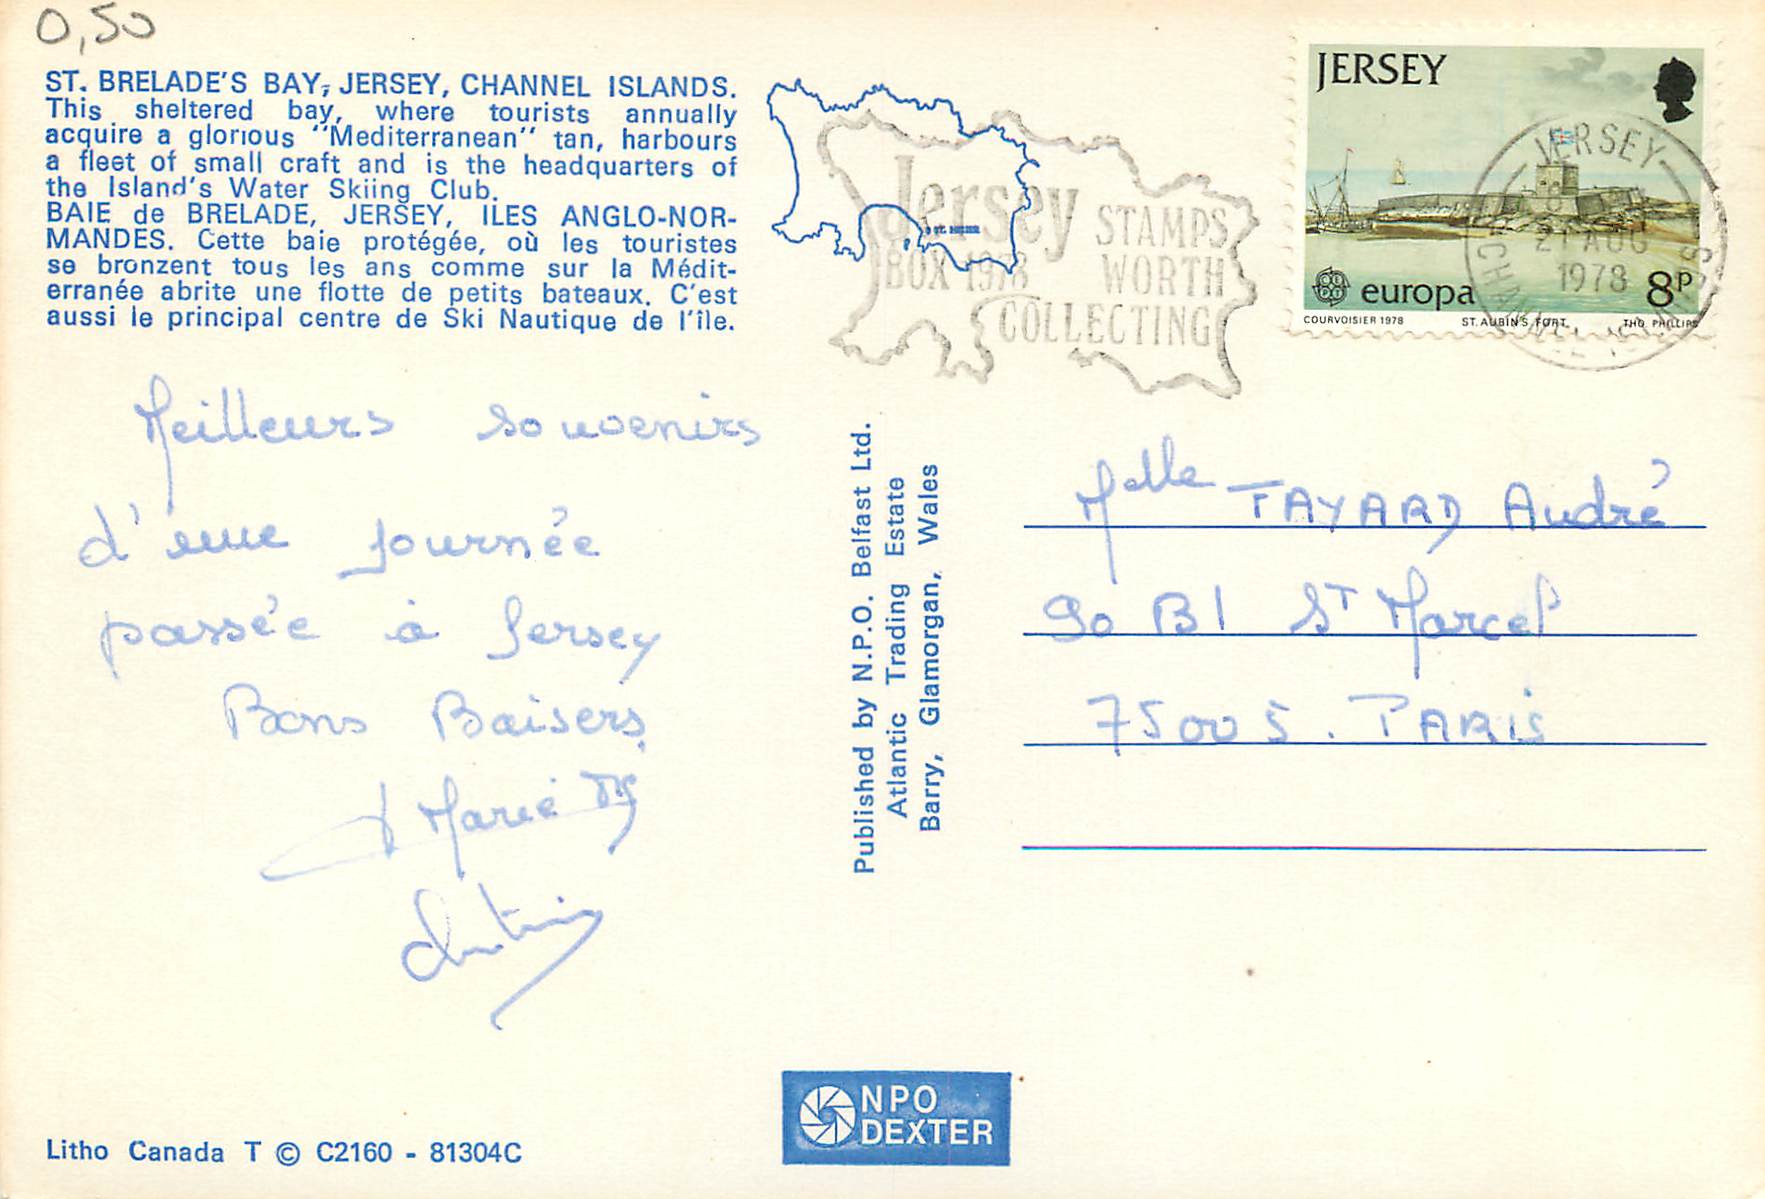 0,50
ST. BRELADE'S BAY, JERSEY, CHANNEL ISLANDS.
This sheltered bay, where tourists annually
acquire a glorious "Mediterranean" tan, harbours
a fleet of small craft and is the headquarters of
the Island's Water Skiing Club.
BAIE de BRELADE, JERSEY, ILES ANGLO-NOR-
MANDES. Cette baie protégée, où les touristes
se bronzent tous les ans comme sur la Médit-
erranée abrite une flotte de petits bateaux. C'est
aussi le principal centre de Ski Nautique de l'île.
Meilleurs souvenirs
d'une journée
passée à Jersey
Bons Baisers
Marie
ST. HELIER
Jersey
BOX 1978
STAMPS
WORTH
COLLECTING
JERSEY
europa
8p
COURVOISIER 1978 ST. AUBIN'S FORT THO. PHILLIPS
JERSEY
21 AUG
1978
CHANNEL ISLANDS
Published by N.P.O. Belfast Ltd.
Atlantic Trading Estate
Barry, Glamorgan, Wales
Melle TAYARD Audré
90 Bl St Marcel
75005. PARIS
NPO
DEXTER
Litho Canada T © C2160 - 81304C